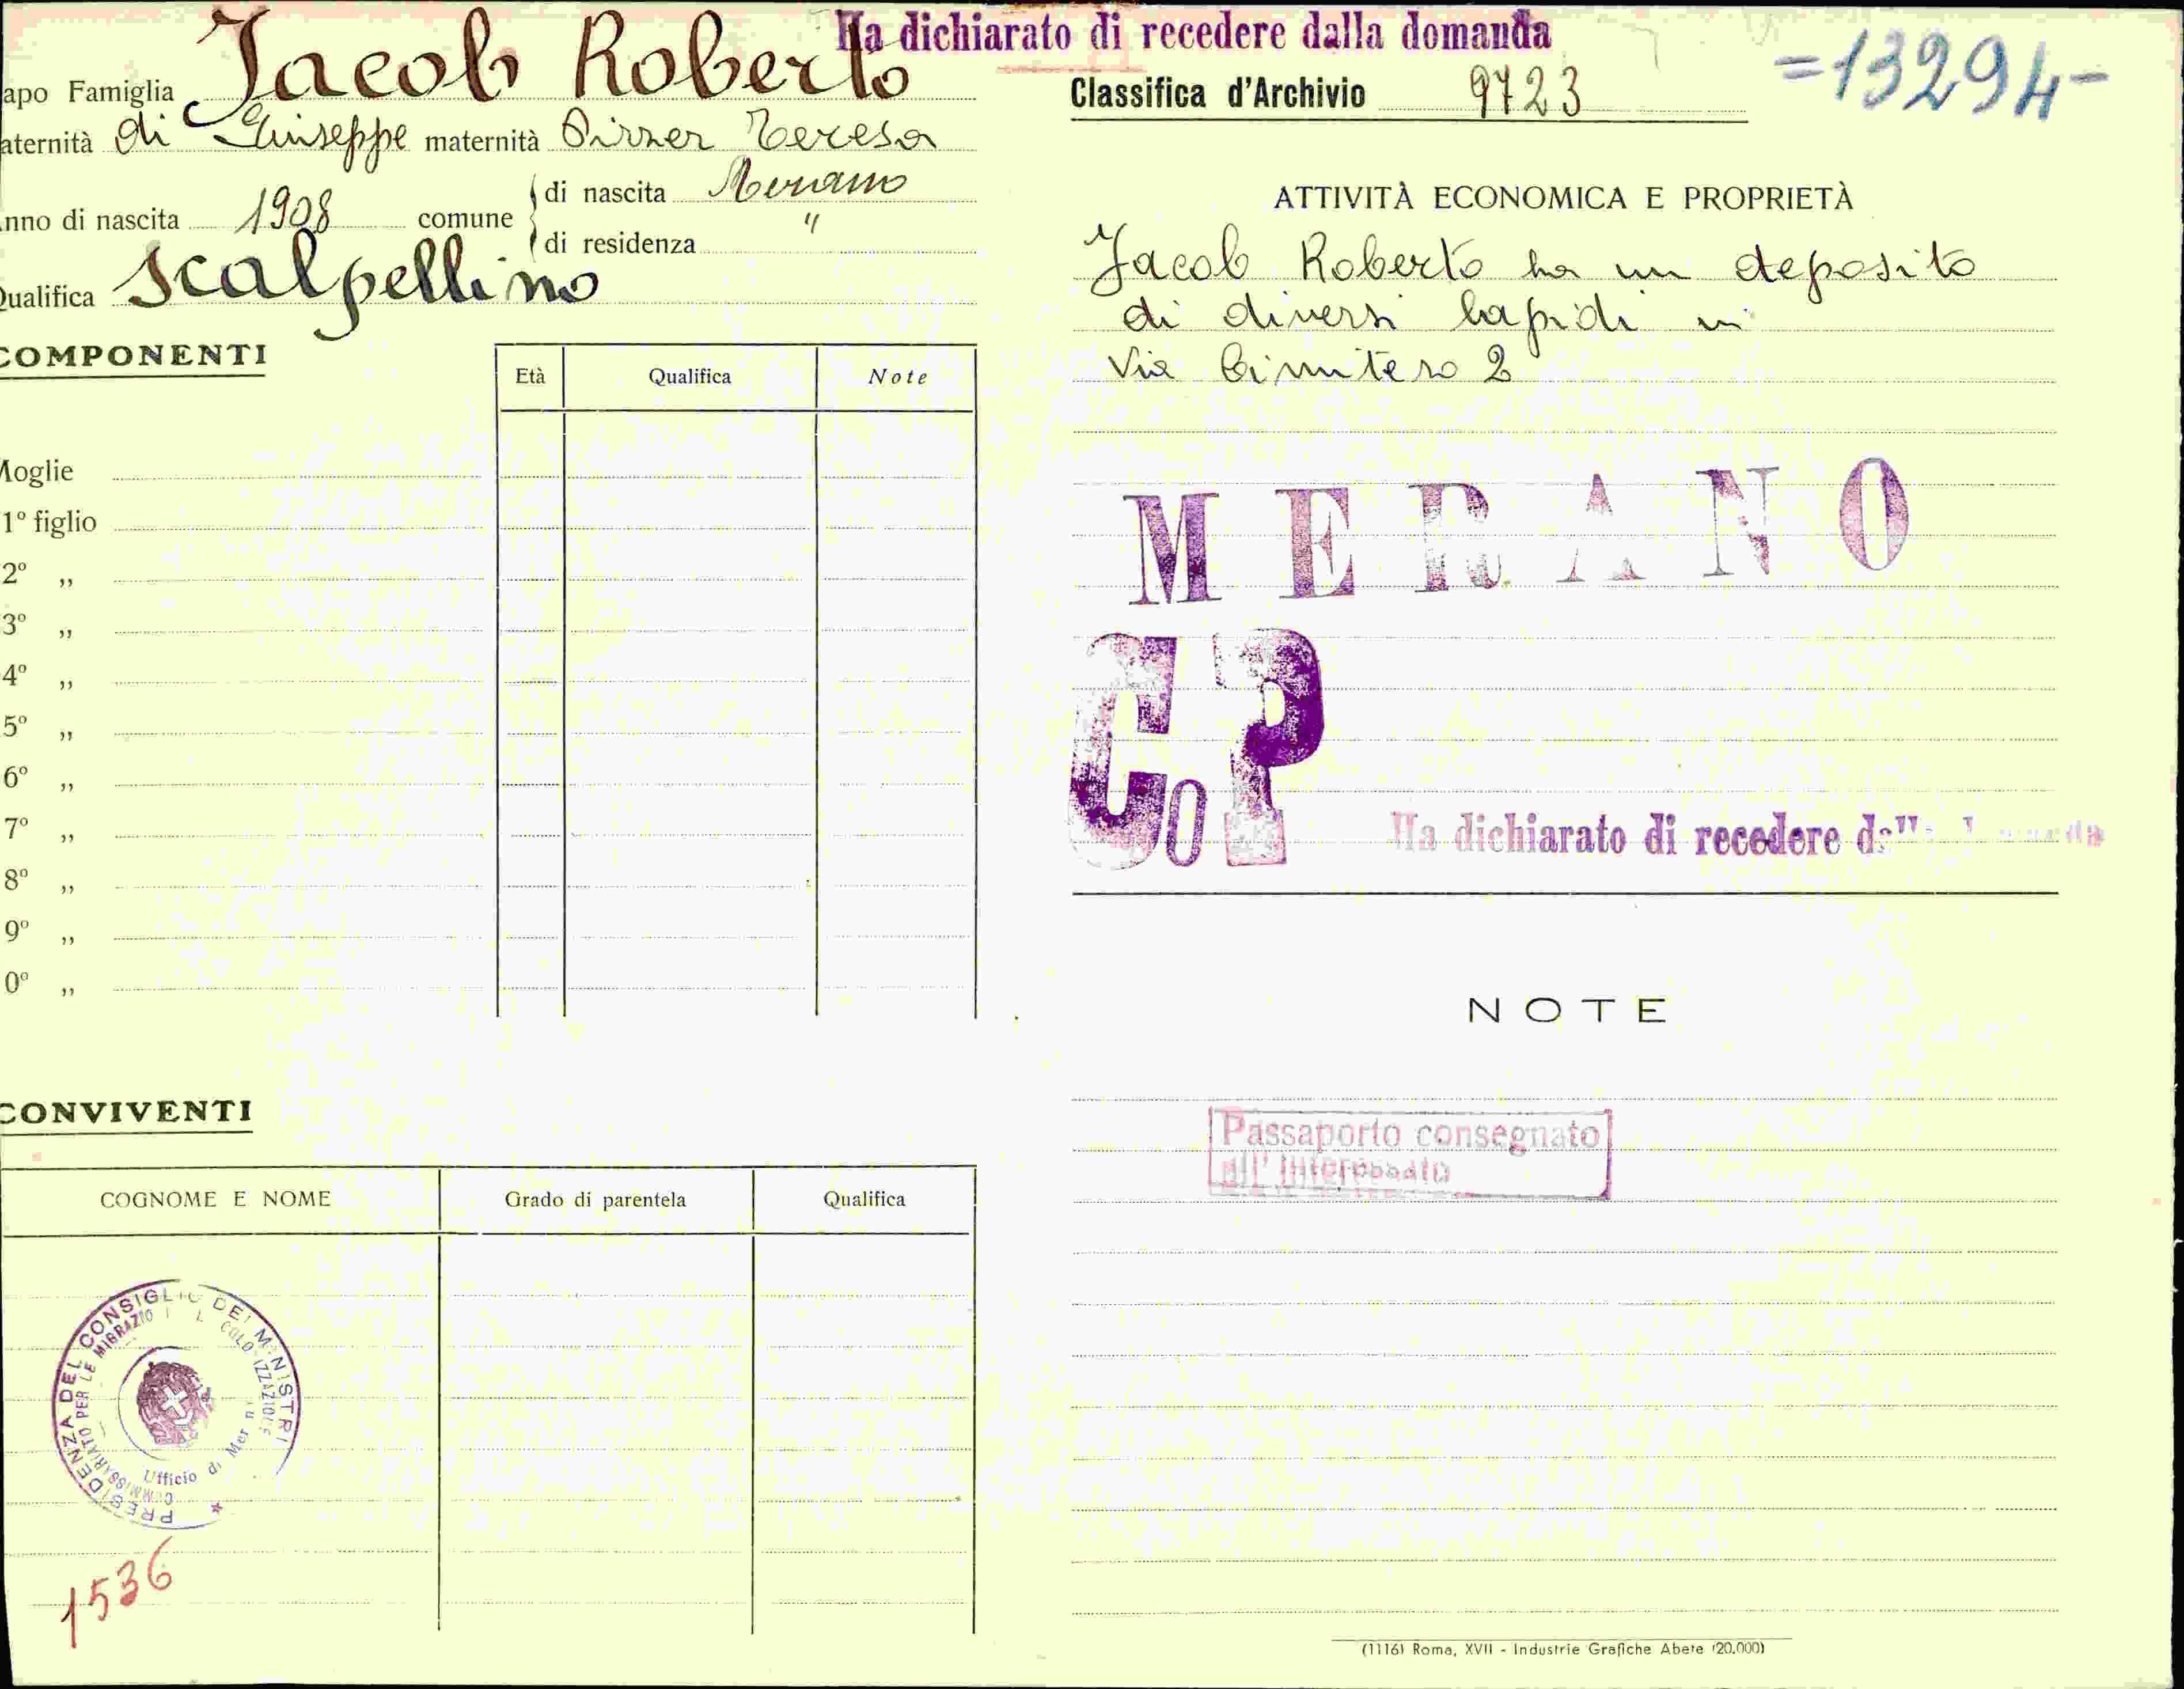 Ha dichiarato di recedere dalla domanda
apo Famiglia Jacob Roberto
aternità di Giuseppe maternità Pirzer Teresa
nno di nascita 1908 comune di nascita Merano
di residenza "
Qualifica scalpellino
Classifica d'Archivio 9723
=13294-
COMPONENTI
Età Qualifica Note
Moglie
1º figlio
2º ,,
3º ,,
4º ,,
5º ,,
6º ,,
7º ,,
8º ,,
9º ,,
0º ,,
CONVIVENTI
COGNOME E NOME Grado di parentela Qualifica
PRESIDENZA DEL CONSIGLIO DEI MINISTRI
COMMISSARIATO PER LE MIGRAZIO COLO IZZAZIONE
Ufficio di Mer
1536
ATTIVITÀ ECONOMICA E PROPRIETÀ
Jacob Roberto ha un deposito
di diversi lapidi in
Via Cimitero 2
MERANO
CoP
Ha dichiarato di recedere
NOTE
Passaporto consegnato
all'interessato
(1116) Roma, XVII - Industrie Grafiche Abete (20.000)